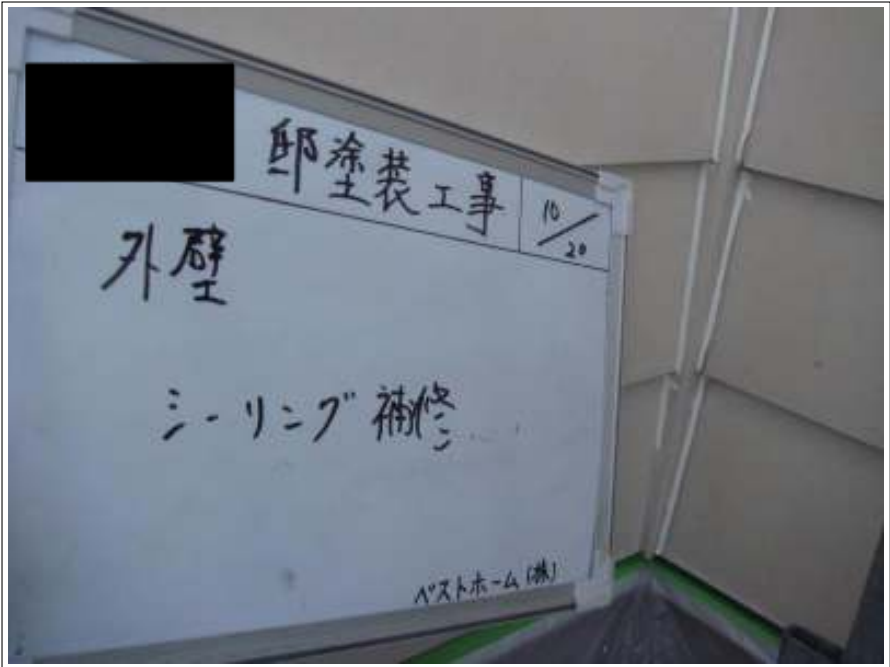 邸塗装工事 10/20
外壁
シーリング補修
ベストホーム(株)